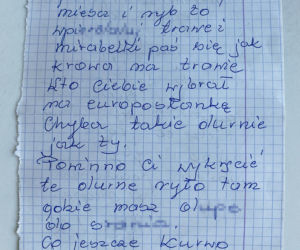 mięsa i ryb to
trawę i
mirabelki paś się jak
krowa na trawie
kto Ciebie wybrał
na europosłankę
chyba takie durnie
jak ty.
Powinno Ci wykręcić
te durne ryło tam
gdzie masz
do
Co jeszcze kurwo